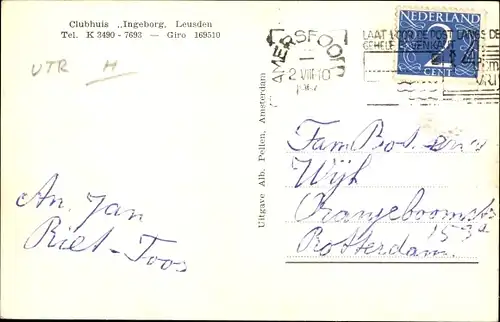 Clubhuis „Ingeborg, Leusden
Tel. K 3490 - 7693 — Giro 169510
UTR H
An. Jan
Riet-Toos
Uitgave Alb. Pellen, Amsterdam
AMERSFOORT
2 VIII 10
LAAT VOOR DE POST LANGS DE
GEHELE
NEDERLAND
2
CENT
Fam Bot. en v
Wijk
Oranjeboomstr
153a
Rotterdam.